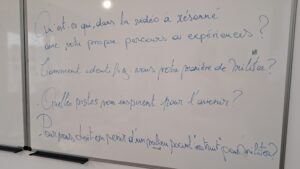 Qu'est-ce qui, dans la vidéo a résonné
avec votre propre parcours ou expériences ?
Comment identifiez vous votre manière de militer ?
Quelles pistes vous inspirent pour l'avenir ?
D
Pour vous, doit-on d'un milieu pour militer ?